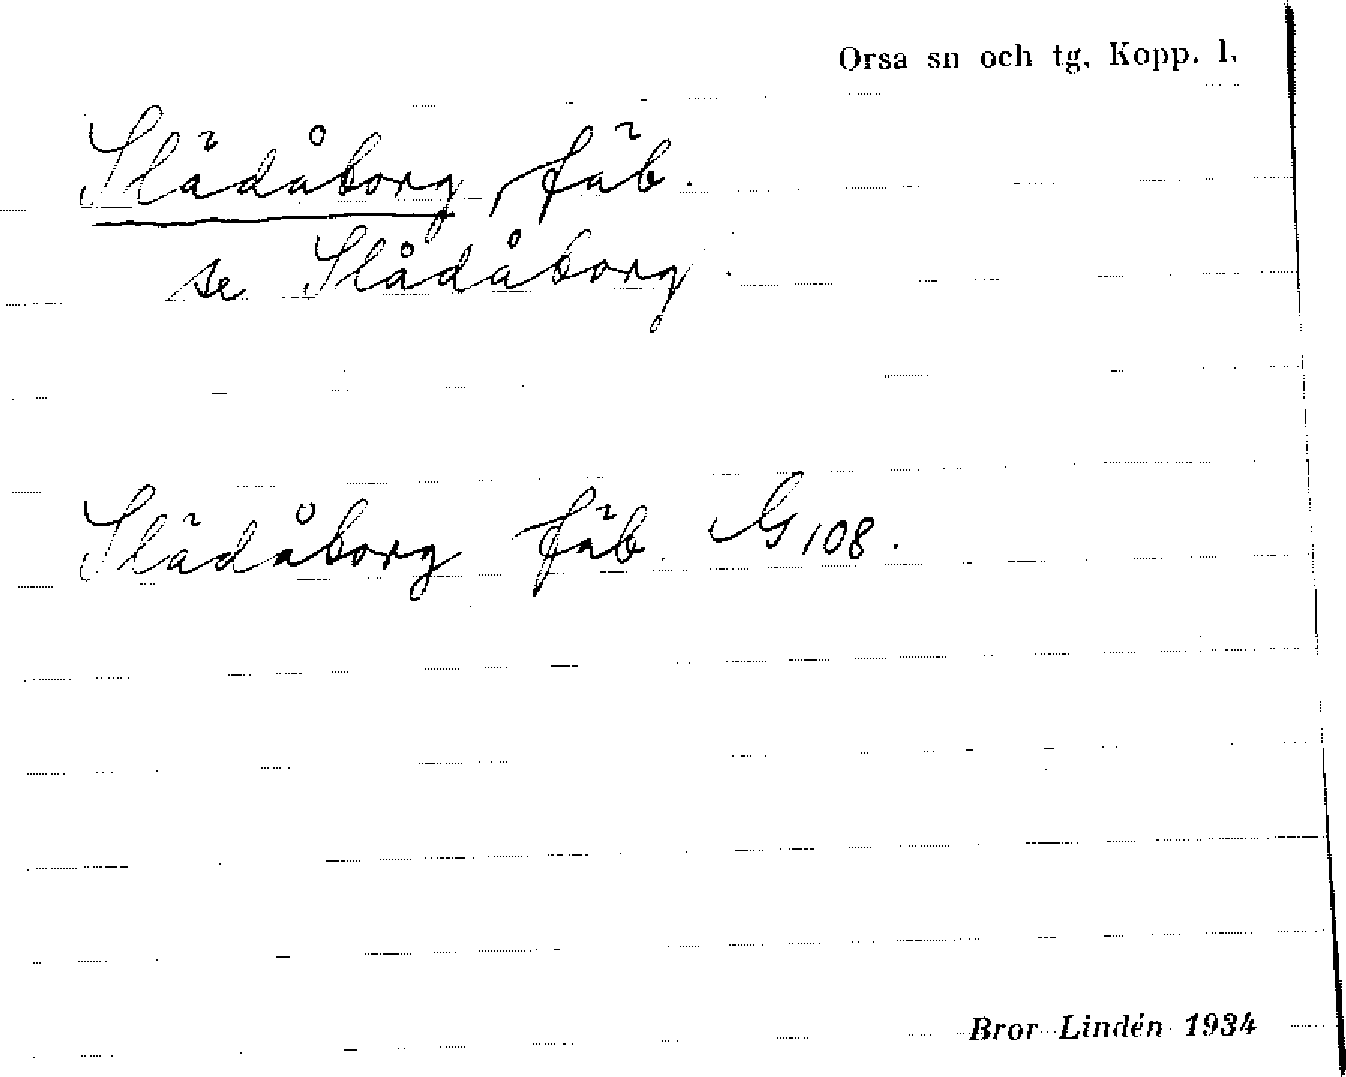 Orsa sn och tg, Kopp. l.
Slädåborg, fäb.
se Slådåborg.
Slädåborg fäb. G 108.
Bror Lindén 1934